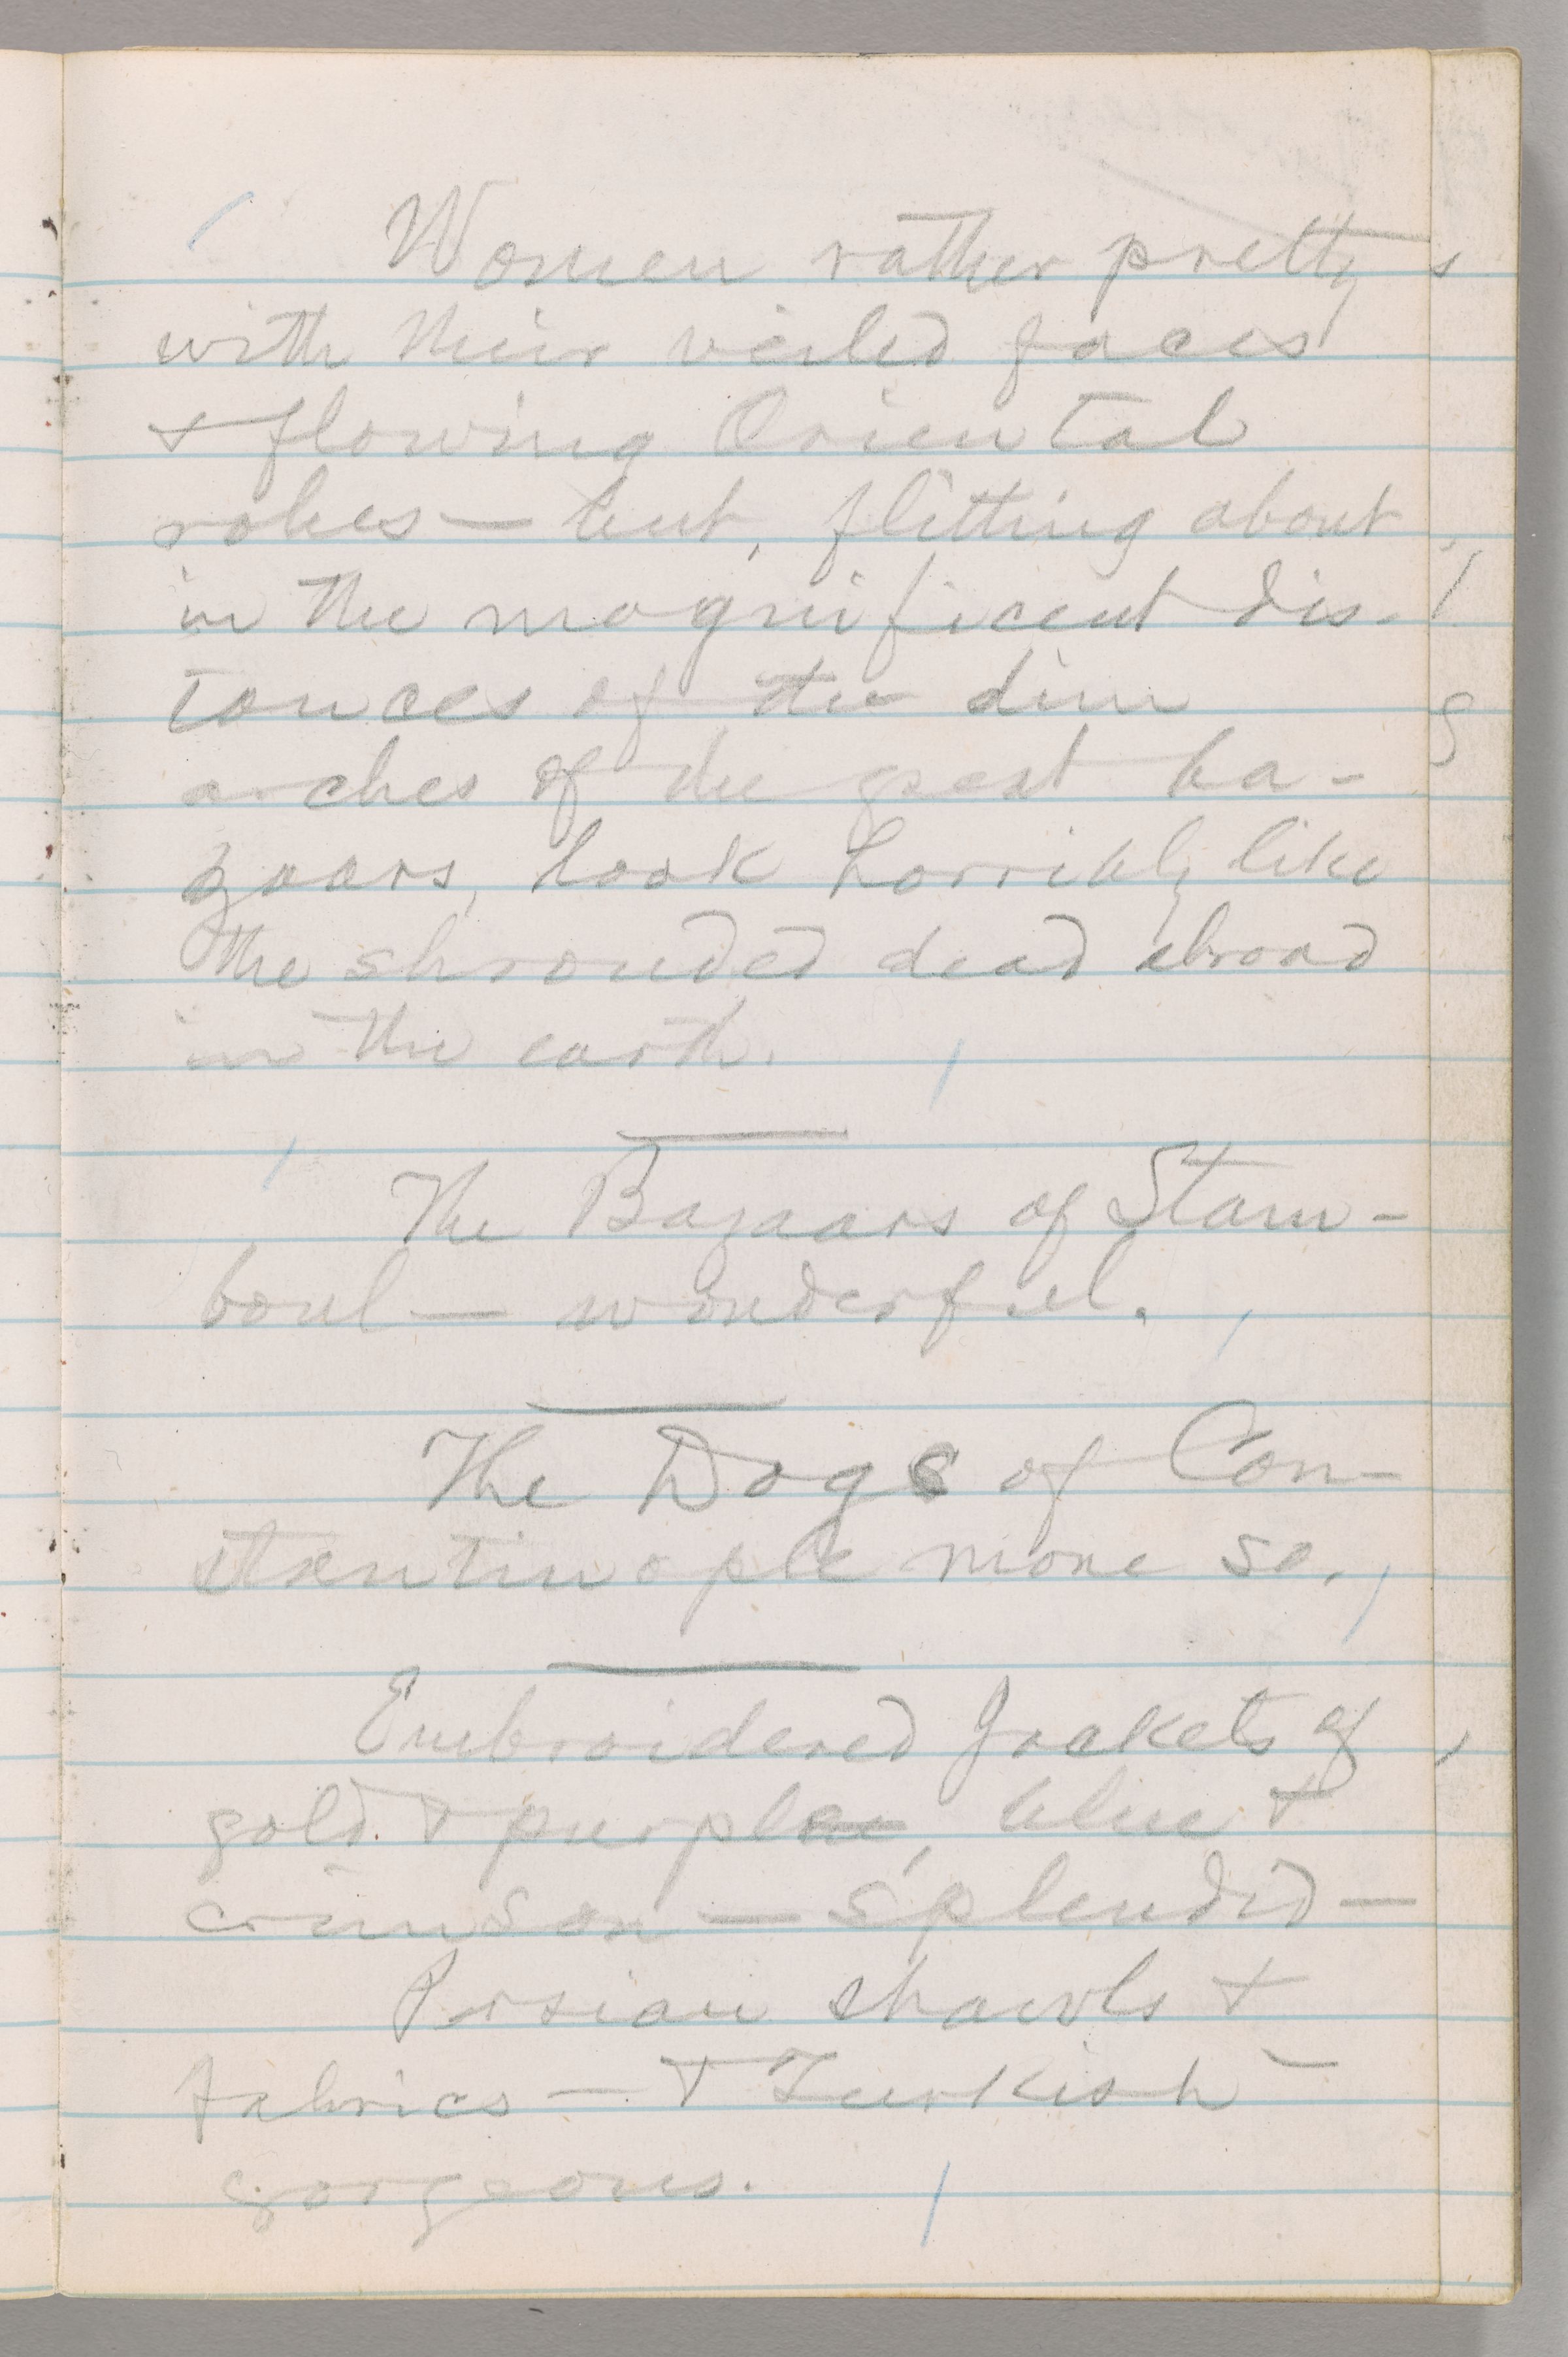 Women rather pretty
with their veiled faces
& flowing Oriental
robes — but, flitting about
in the magnificent dis-
tances of the dim
arches of the great ba-
zaars, look horribly like
the shrouded dead abroad
in the earth.
The Bazaars of Stam-
boul — wonderful.
The Dogs of Con-
stantinople more so.
Embroidered Jackets of
gold & purple, blue &
crimson — splendid —
Persian shawls &
fabrics — & Turkish —
gorgeous.